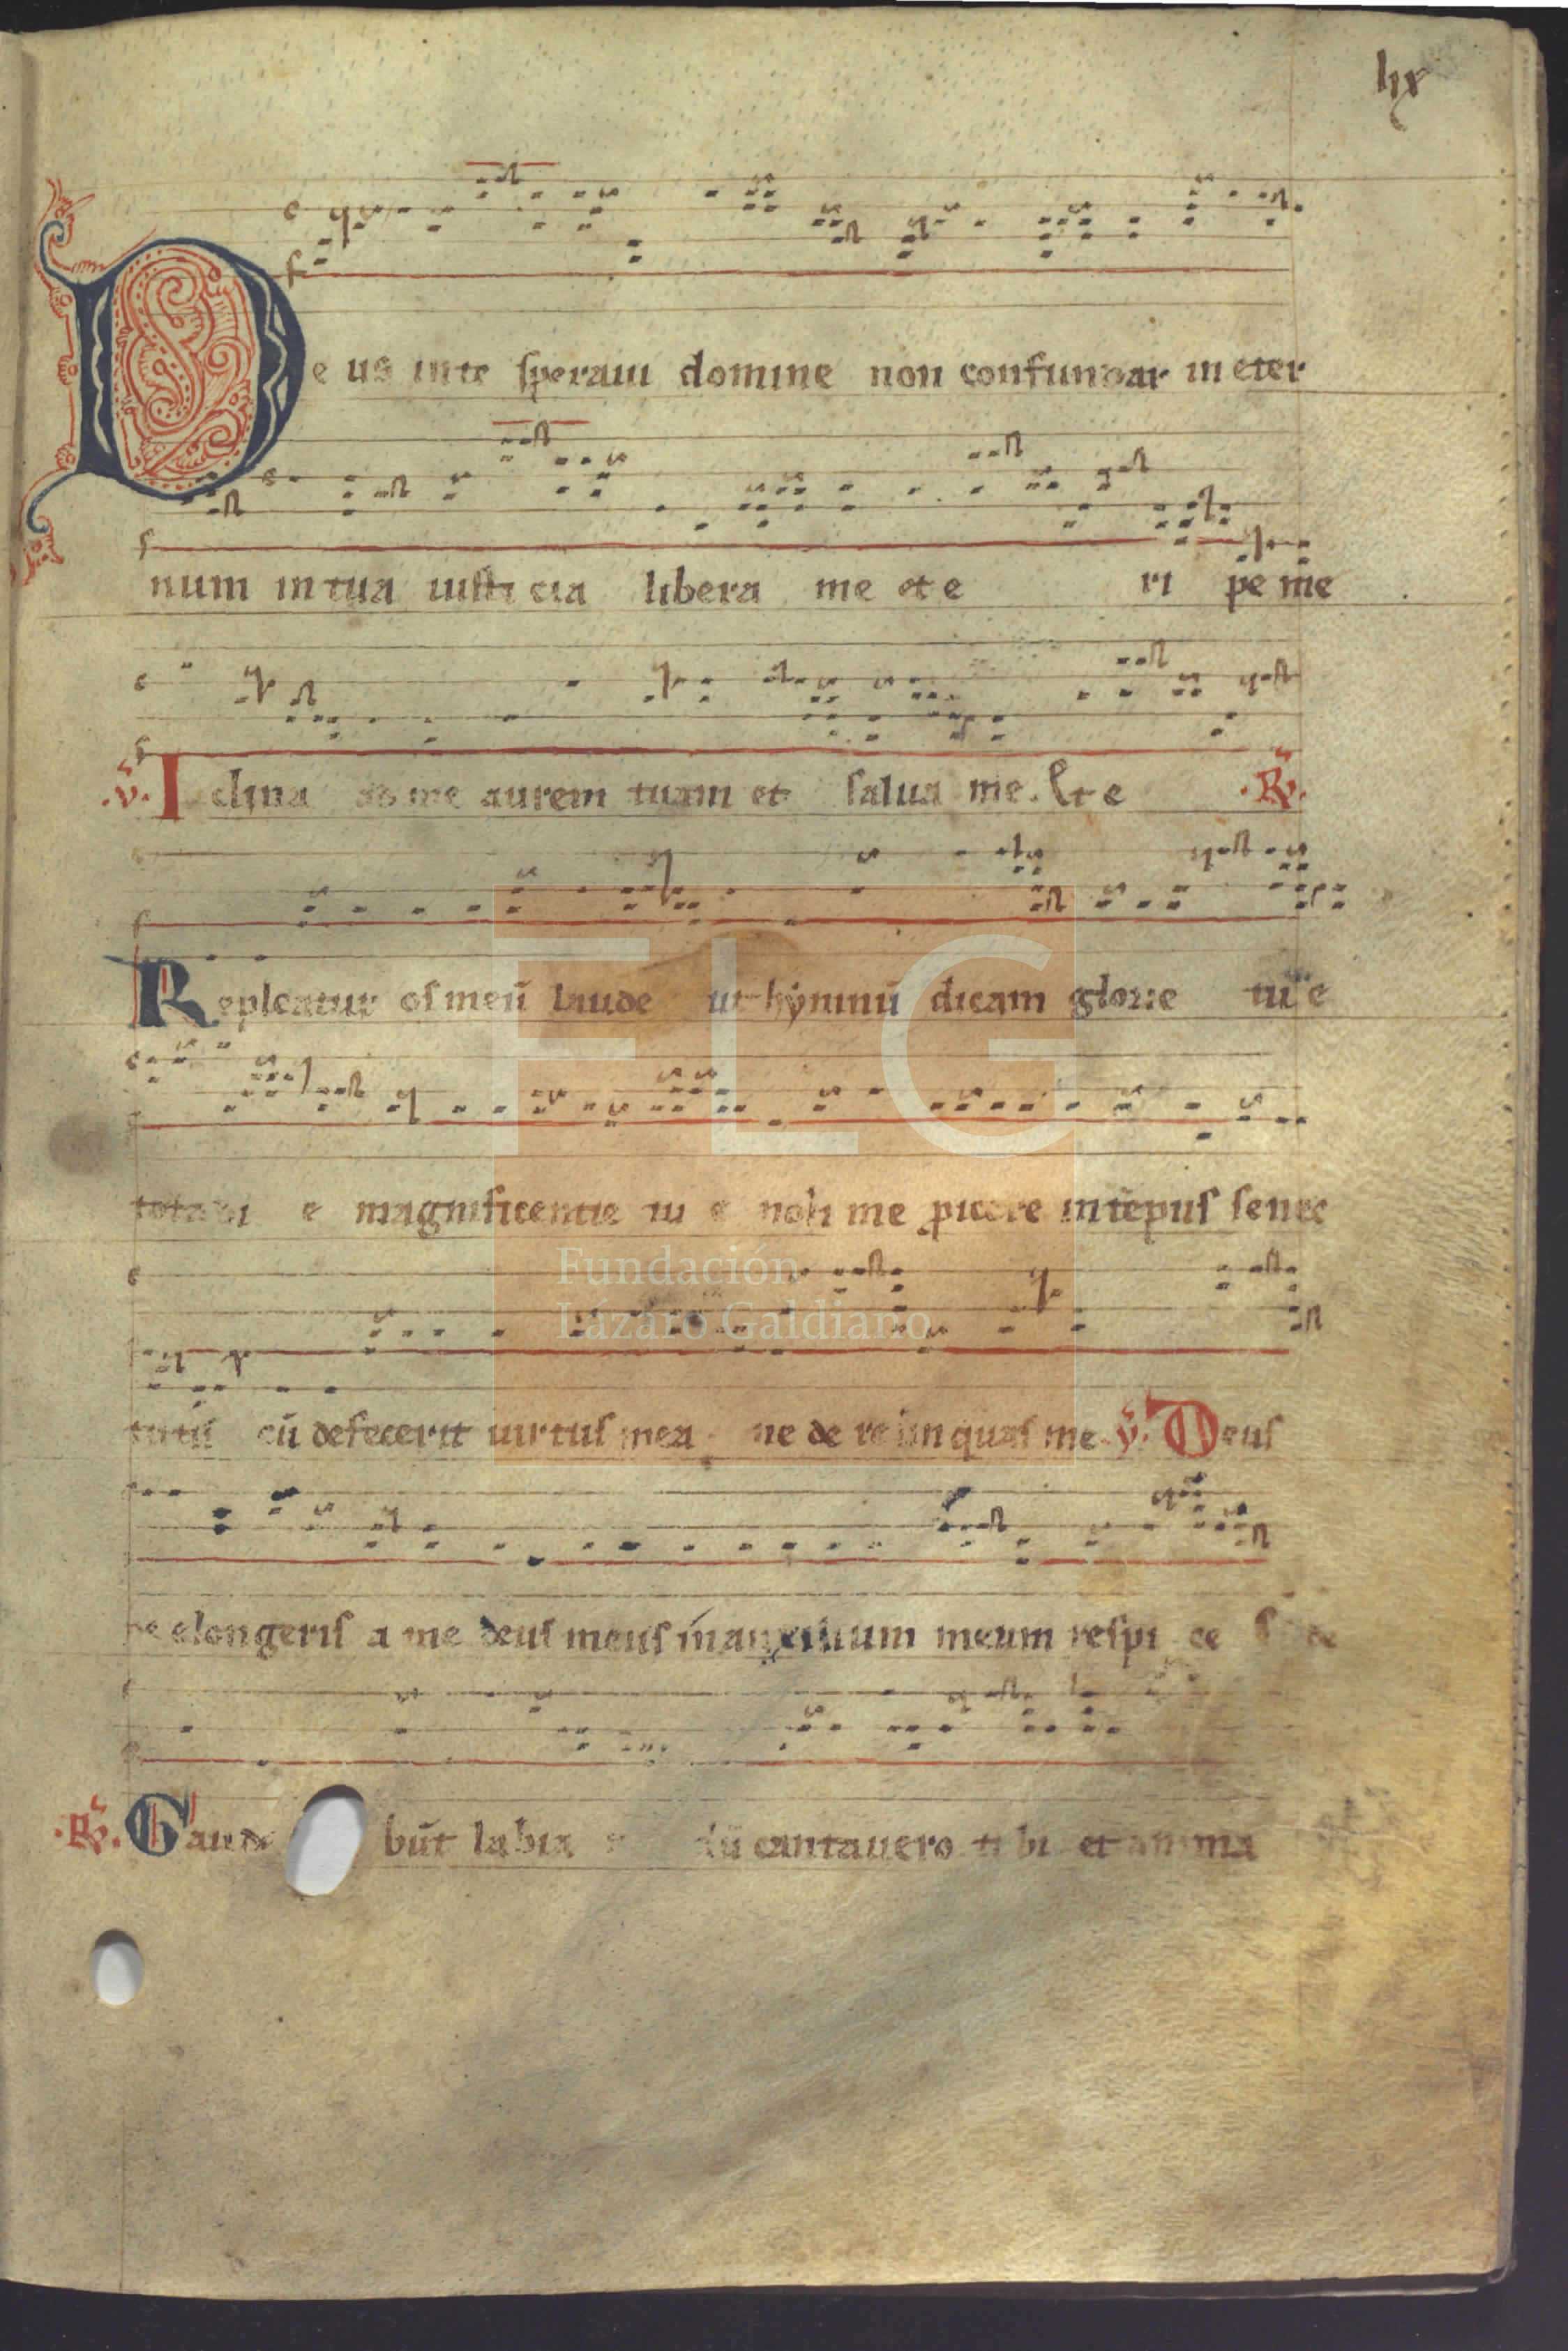 lix
Deus in te speraui domine non confundar in eter
num in tua iusticia libera me et e ri pe me
.v. Inclina ad me aurem tuam et salua me. Et e .R.
Repleatur os meū laude ut hẏmnū dicam glorie tu e
tota di e magnificentie tu e noli me ꝓicere in tēpus senec
tutis cū defecerit uirtus mea ne de relinquas me .v. Deus
ne elongeris a me deus meus in auxilium meum respi ce
.R. Gaude būt labia dū cantauero ti bi et anima
FLG
Fundación
Lázaro Galdiano